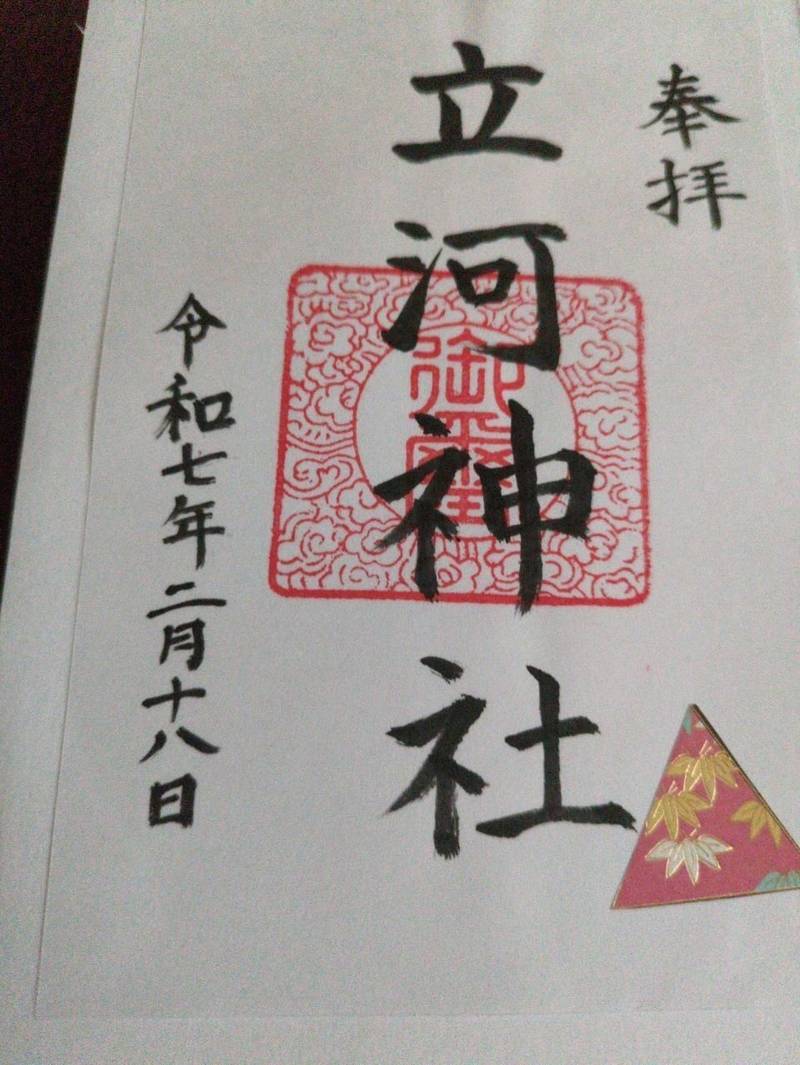 奉拝
立河神社
御璽
令和七年二月十八日